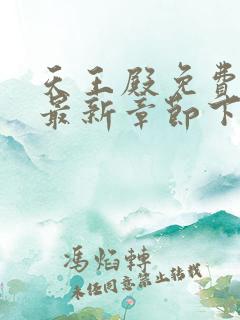 天王殿免费
最新章節下
馮焰轉
未经同意禁止转载